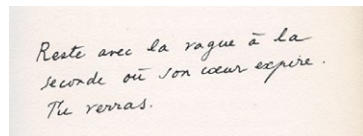 Reste avec la vague à la
seconde où son cœur expire.
Tu verras.